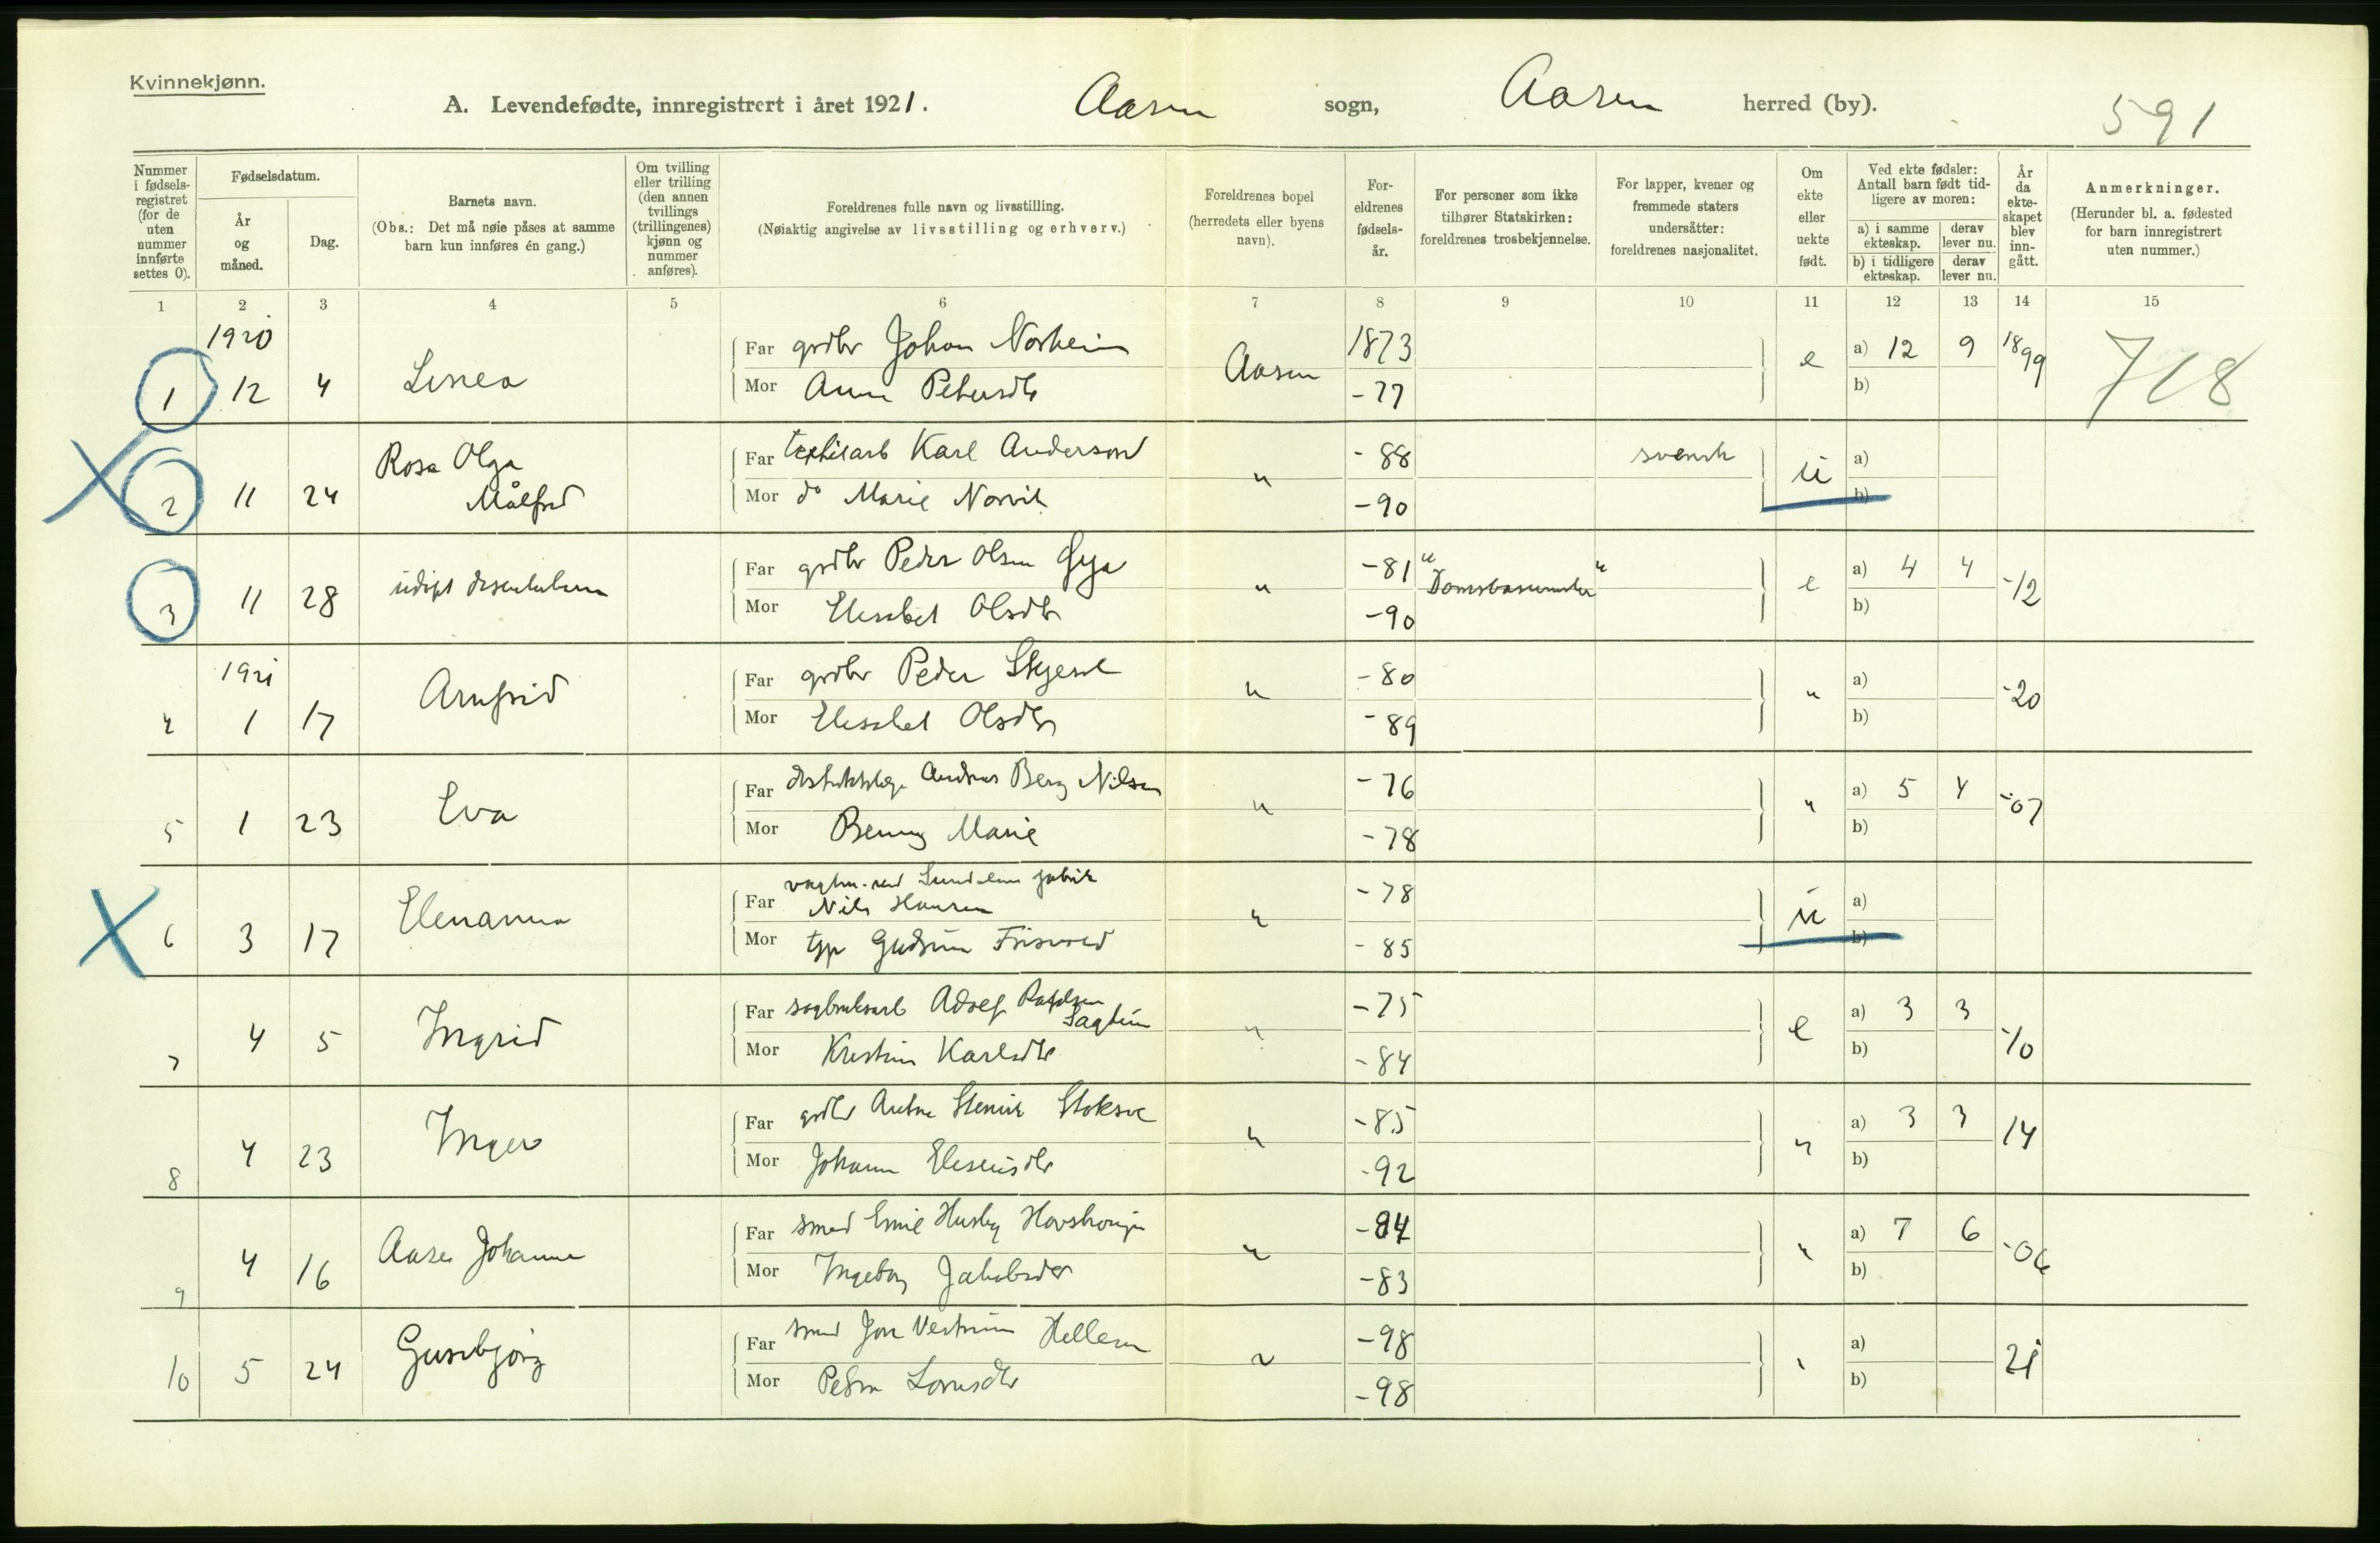 Kvinnekjønn.
A. Levendefødte, innregistrert i året 1921. Aasen sogn, Aasen herred (by). 591
Nummer i fødsels-registret (for de uten nummer innførte settes 0).
Fødselsdatum.
År og måned.
Dag.
Barnets navn.
(Obs.: Det må nøie påses at samme barn kun innføres én gang.)
Om tvilling eller trilling (den annen tvillings (trillingenes) kjønn og nummer anføres).
Foreldrenes fulle navn og livsstilling.
(Nøiaktig angivelse av livsstilling og erhverv.)
Foreldrenes bopel (herredets eller byens navn).
For-eldrenes fødsels-år.
For personer som ikke tilhører Statskirken: foreldrenes trosbekjennelse.
For lapper, kvener og fremmede staters undersåtter: foreldrenes nasjonalitet.
Om ekte eller uekte født.
Ved ekte fødsler: Antall barn født tid-ligere av moren:
a) i samme ekteskap.
derav lever nu.
b) i tidligere ekteskap.
derav lever nu.
År da ekte-skapet blev inn-gått.
Anmerkninger.
(Herunder bl. a. fødested for barn innregistrert uten nummer.)
1 2 3 4 5 6 7 8 9 10 11 12 13 14 15
1920
Far grdbr Johan Norheim 1873 a) 12 9 1899
1 12 4 Linea Aasen e 718
Mor Anna Petersdtr -77 b)
Rosa Olga Far Karl Anderson -88 svensk a)
2 11 24 Målfrid " u
Mor do Marie Norvik -90 b)
Far grdbr Peder Olsen Gya -81 a) 4 4
3 11 28 udøpt " e -12
Mor Elisabet Olsdtr -90 b)
1921
Far grdbr Peder -80 a)
4 1 17 Arnfrid " " -20
Mor Elisabet Olsdtr -89 b)
Far distriktslæge Andreas Berg Nilsen -76 a) 5 4
5 1 23 Eva " " -07
Mor Benny Marie -78 b)
Far Nils Hansen -78 a)
6 3 17 Elenanna " u
Mor Gudrun -85 b)
Far sagbruksarb Adolf -75 a) 3 3
7 4 5 Ingrid " e -10
Mor Kristin Karlsdtr -84 b)
Far grdbr -85 a) 3 3
8 4 23 Inger " " 14
Mor Johanna Eliseusdtr -92 b)
Far smed Emil Husby -84 a) 7 6
9 4 16 Aase Johanne " " -06
Mor Ingeborg Jakobsdtr -83 b)
Far smed Jon Hellem -98 a)
10 5 24 Gunbjørg " " 21
Mor Petra -98 b)